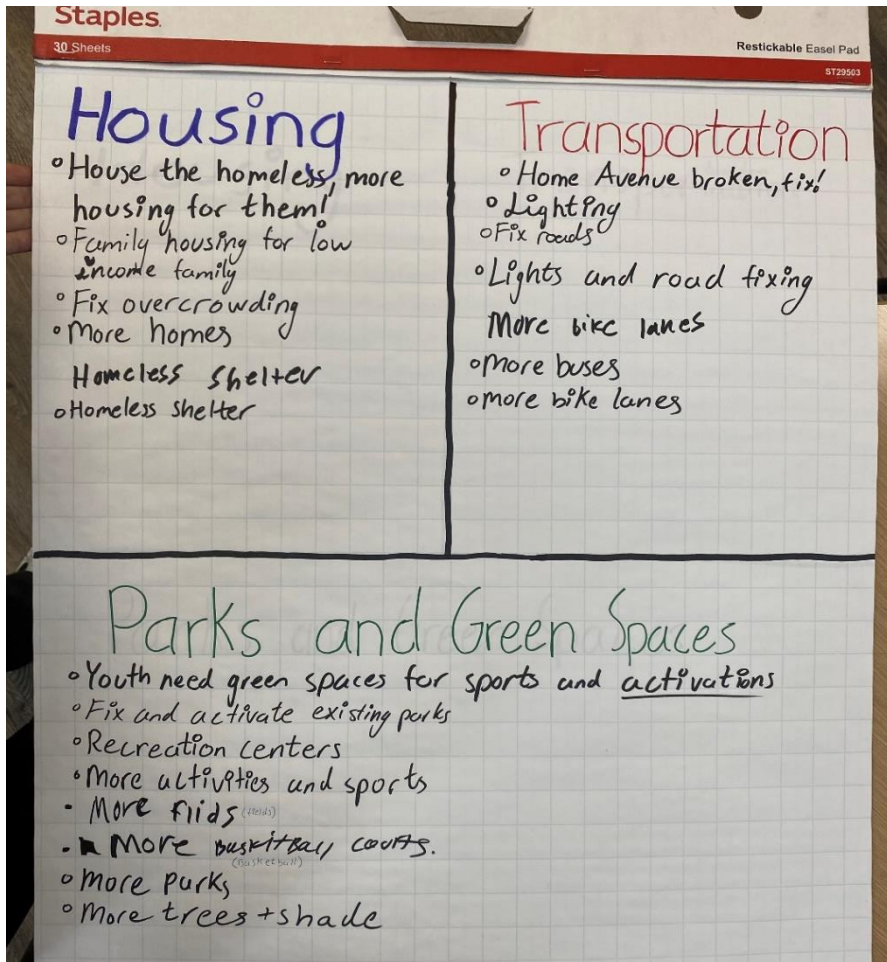 Staples
30 Sheets
Restickable Easel Pad
ST29503
Housing
° House the homeless, more
housing for them!
° Family housing for low
income family
° Fix overcrowding
° More homes
Homeless shelter
° Homeless shelter
Transportation
° Home Avenue broken, fix!
° Lighting
° Fix roads
° Lights and road fixing
More bike lanes
° more buses
° more bike lanes
Parks and Green Spaces
° Youth need green spaces for sports and activations
° Fix and activate existing parks
° Recreation centers
° More activities and sports
• More fiids (fields)
• More buskitball courts.
(Basketball)
° More parks
° More trees + shade